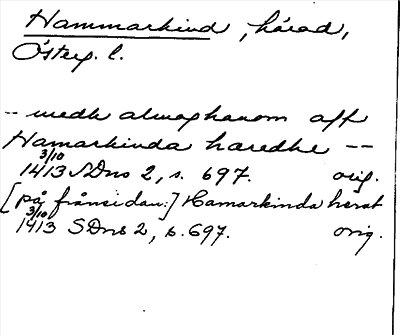 Hammarkind, härad,
Österg. l.
-- medh almoghanom aff
Hamarkinda haredhe --
3/10
1413 SDns 2, s. 697. orig.
[på frånsidan:] Hamarkinda herat
3/10
1413 SDns 2, s. 697. orig.